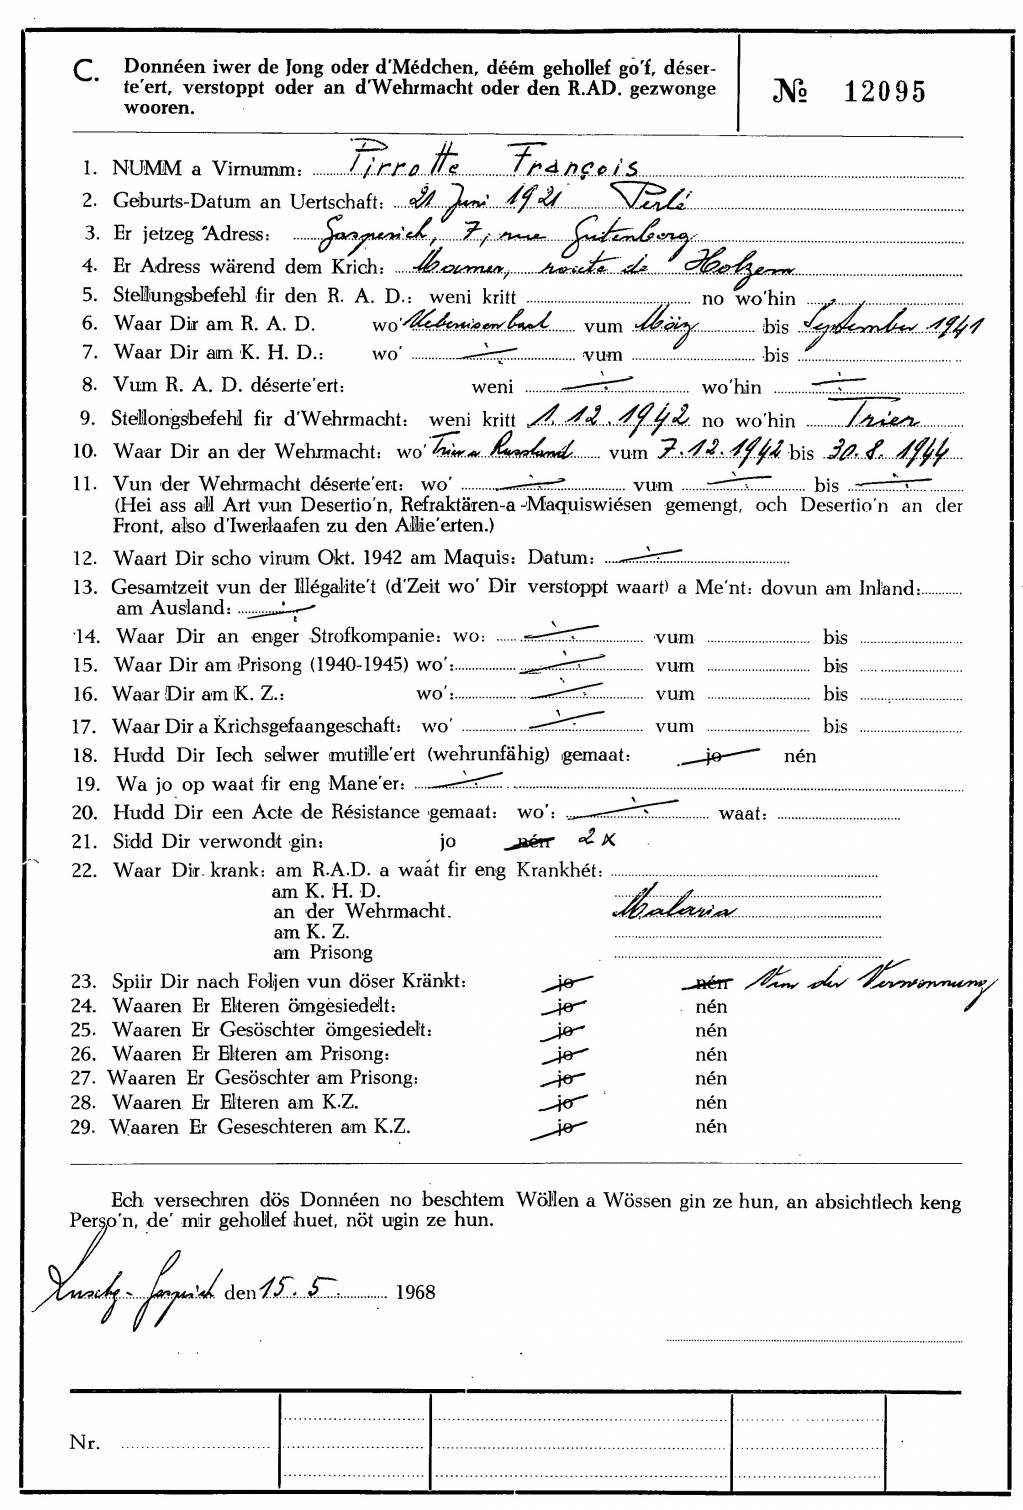 C. Donnéen iwer de Jong oder d'Médchen, déém gehollef go'f, déser-
te'ert, verstoppt oder an d'Wehrmacht oder den R.AD. gezwonge
wooren.
№ 12095
1. NUMM a Virnumm: Pirrotte François
2. Geburts-Datum an Uertschaft: 21 Juni 1921 Perlé
3. Er jetzeg Adress: Gasperich, 7, rue Gutenberg
4. Er Adress wärend dem Krich: Mamer, route de Holzem
5. Stellungsbefehl fir den R. A. D.: weni kritt no wo'hin
6. Waar Dir am R. A. D. wo' vum März bis September 1941
7. Waar Dir am K. H. D.: wo' ÷ vum bis
8. Vum R. A. D. déserte'ert: weni ÷ wo'hin ÷
9. Stelllongsbefehl fir d'Wehrmacht: weni kritt 1.12.1942 no wo'hin Trier
10. Waar Dir an der Wehrmacht: wo' Trier u Russland vum 7.12.1942 bis 30.8.1944
11. Vun der Wehrmacht déserte'ert: wo' ÷ vum ÷ bis ÷
(Hei ass all Art vun Desertio'n, Refraktären-a-Maquiswiésen gemengt, och Desertio'n an der
Front, also d'Iwerlaafen zu den Allie'erten.)
12. Waart Dir scho virum Okt. 1942 am Maquis: Datum: ÷
13. Gesamtzeit vun der Illégalite't (d'Zeit wo' Dir verstoppt waart) a Me'nt: dovun am Inland:
am Ausland: ÷
14. Waar Dir an enger Strofkompanie: wo: ÷ vum bis
15. Waar Dir am Prisong (1940-1945) wo': ÷ vum bis
16. Waar Dir am K. Z.: wo': ÷ vum bis
17. Waar Dir a Krichsgefaangeschaft: wo' ÷ vum bis
18. Hudd Dir Iech selwer mutille'ert (wehrunfähig) gemaat: jo nén
19. Wa jo op waat fir eng Mane'er: ÷
20. Hudd Dir een Acte de Résistance gemaat: wo': ÷ waat:
21. Sidd Dir verwondt gin: jo nén 2 x
22. Waar Dir krank: am R.A.D. a waat fir eng Krankhét:
am K. H. D.
an der Wehrmacht. Malaria
am K. Z.
am Prisong
23. Spiir Dir nach Foljen vun döser Kränkt: jo nén Vun der Verwonnung
24. Waaren Er Elteren ömgesiedelt: jo nén
25. Waaren Er Gesöschter ömgesiedelt: jo nén
26. Waaren Er Elteren am Prisong: jo nén
27. Waaren Er Gesöschter am Prisong: jo nén
28. Waaren Er Elteren am K.Z. jo nén
29. Waaren Er Geseschteren am K.Z. jo nén
Ech versechren dös Donnéen no beschtem Wöllen a Wössen gin ze hun, an absichtlech keng
Perso'n, de' mir gehollef huet, nöt ugin ze hun.
Gasperich den 15.5. 1968
Nr.